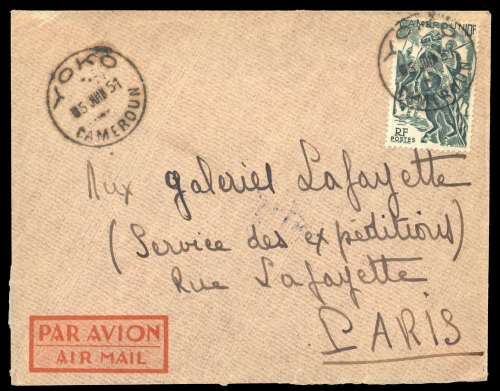 YOKO
15 JUIN 51
CAMEROUN
CAMEROUN 10F
YOKO
CAMEROUN
RF
POSTES
Aux galeries Lafayette
(Service des expéditions)
Rue Lafayette
PARIS
PAR AVION
AIR MAIL